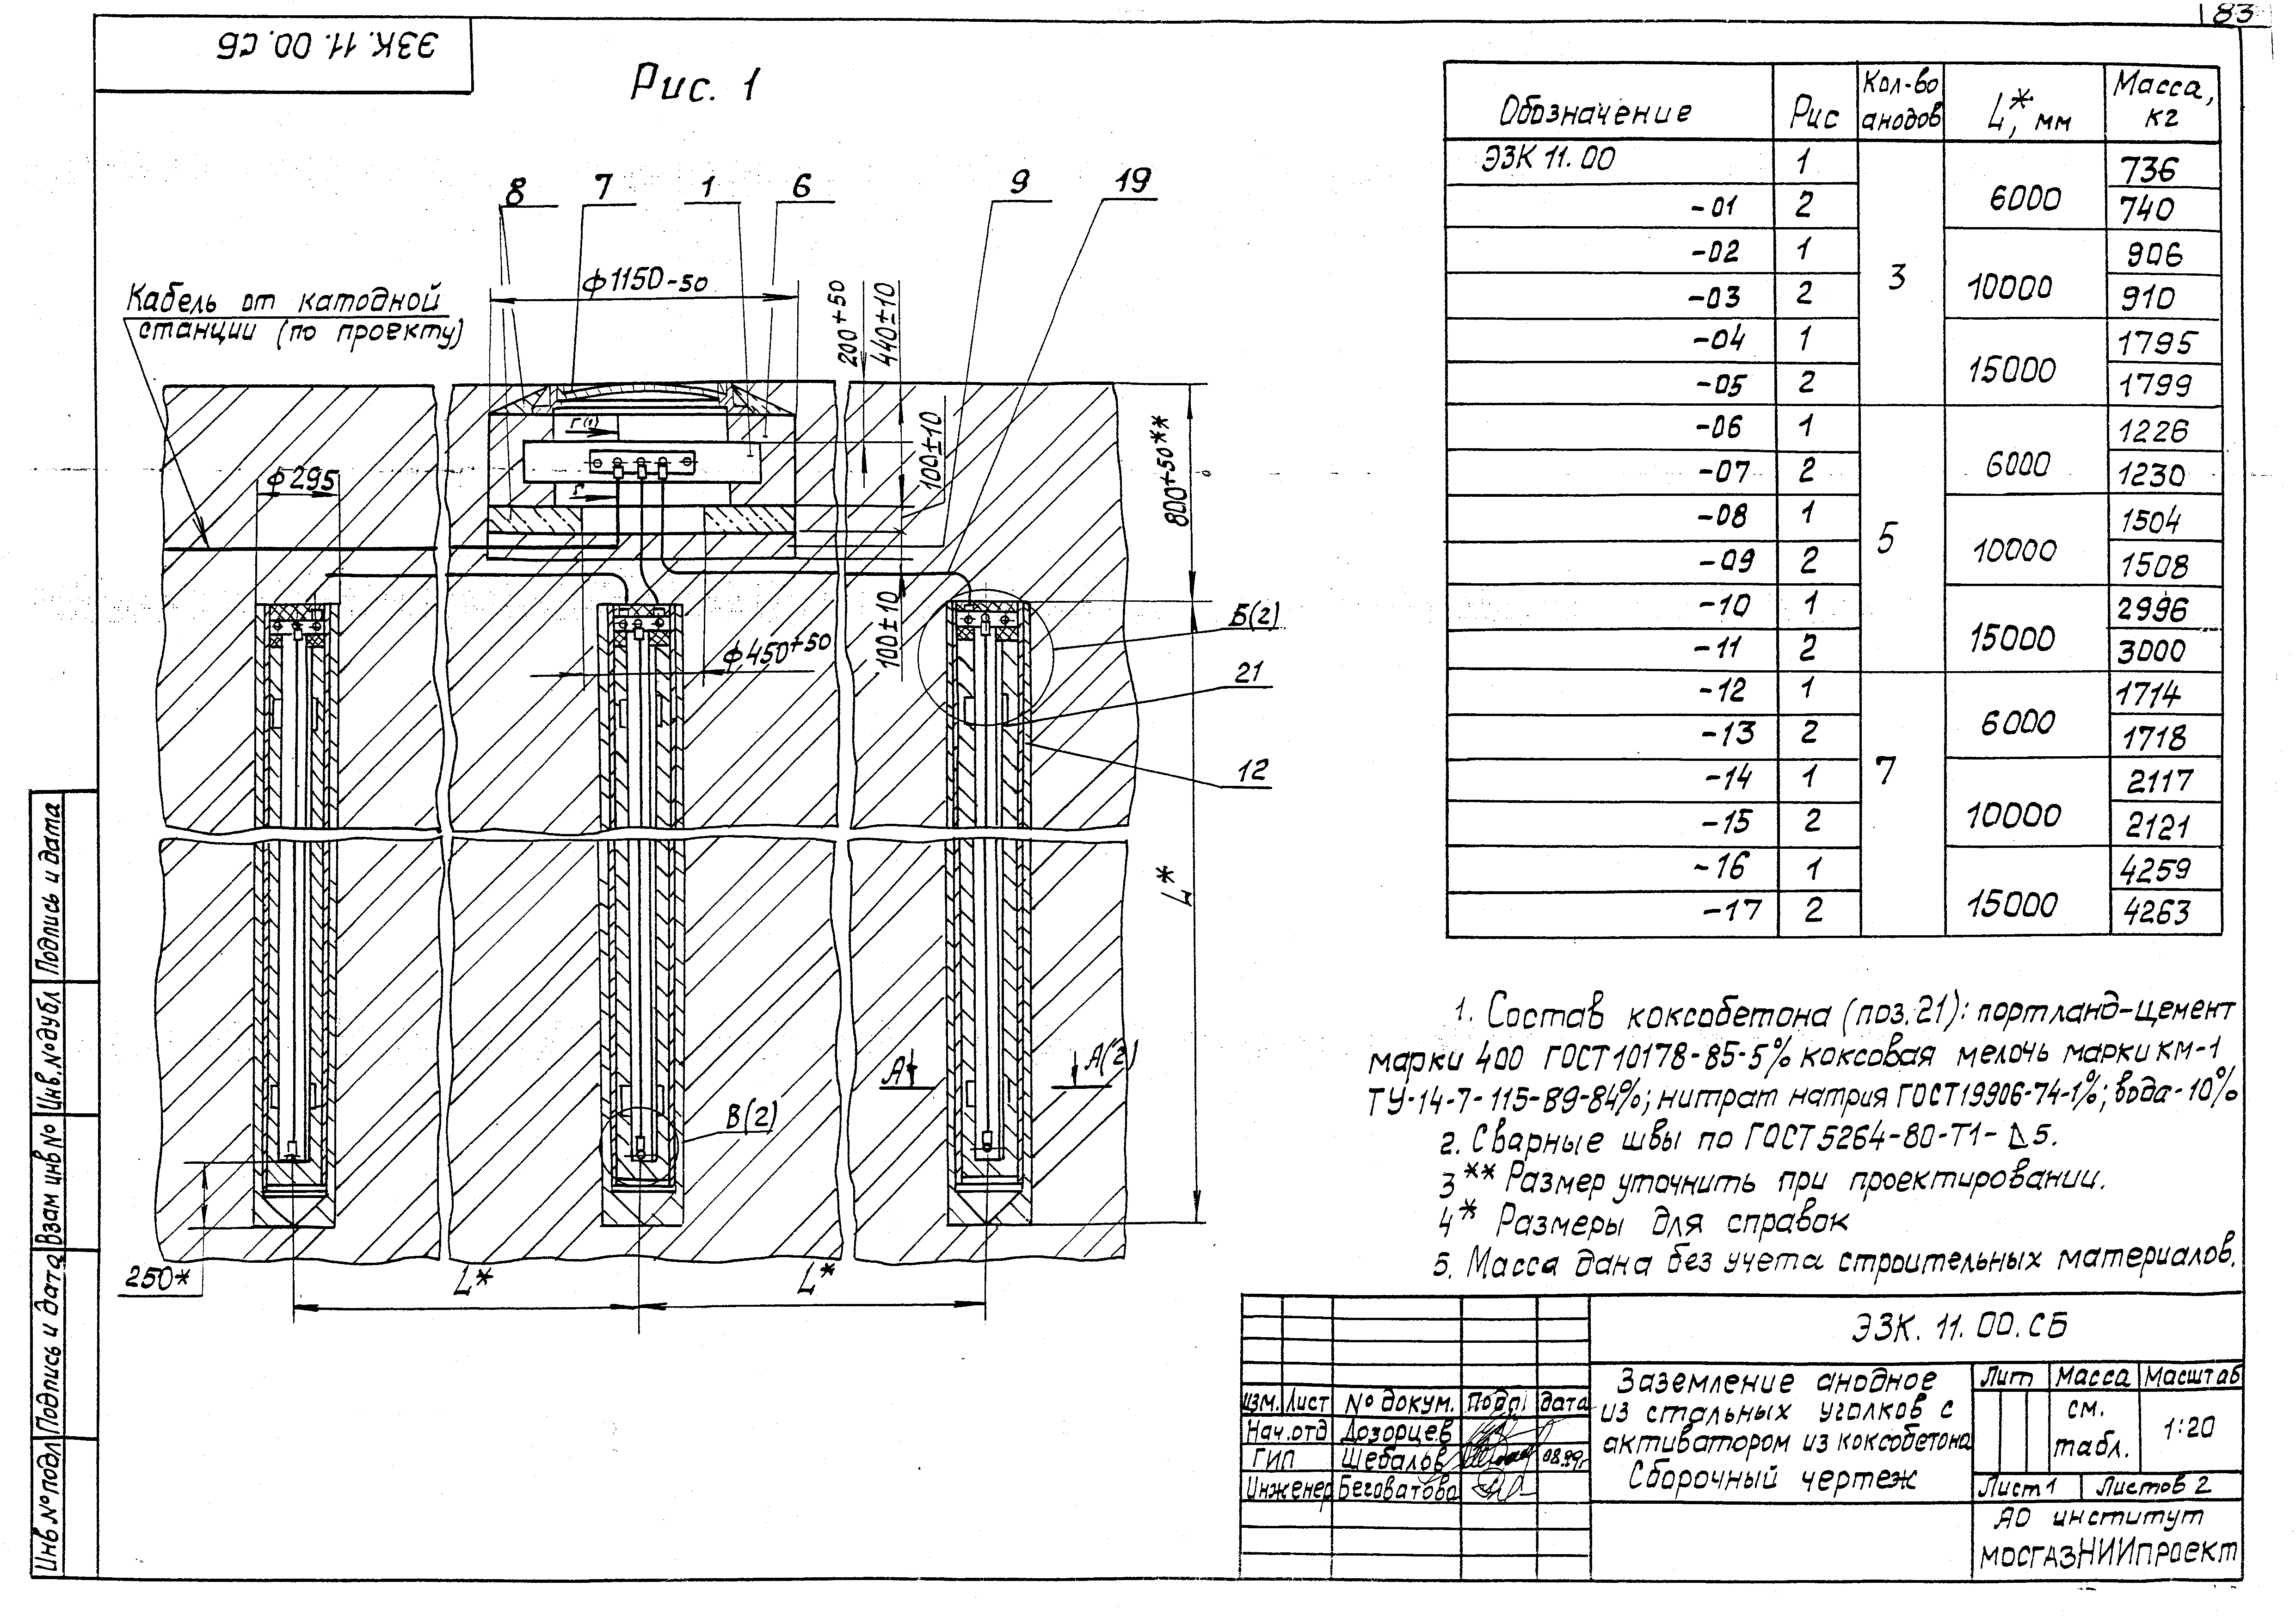 83
ЭЗК.11.00.СБ
Рис. 1
8 7 1 6 9 19
ф1150-50
200+50
440±10
Кабель от катодной
станции (по проекту)
Г(1)
100±10
800+50**
ф295
Г
Б(2)
100±10
ф450+50
21
12
L*
А А(2)
В(2)
250*
L* L*
Обозначение Рис Кол-во анодов L,* мм Масса, кг
ЭЗК 11.00 1 3 6000 736
-01 2 740
-02 1 10000 906
-03 2 910
-04 1 15000 1795
-05 2 1799
-06 1 5 6000 1226
-07 2 1230
-08 1 10000 1504
-09 2 1508
-10 1 15000 2996
-11 2 3000
-12 1 7 6000 1714
-13 2 1718
-14 1 10000 2117
-15 2 2121
-16 1 15000 4259
-17 2 4263
1. Состав коксобетона (поз.21): портланд-цемент
марки 400 ГОСТ 10178-85-5% коксовая мелочь марки КМ-1
ТУ-14-7-115-89-84%; нитрат натрия ГОСТ19906-74-1%; вода-10%
2. Сварные швы по ГОСТ 5264-80-Т1-△5.
3** Размер уточнить при проектировании.
4* Размеры для справок
5. Масса дана без учета строительных материалов.
Подпись и дата
Инв.№дубл
Взам инв №
Подпись и дата
Инв №подл
ЭЗК. 11. 00. СБ
Изм. Лист № докум. Подп дата
Нач.отд Дозорцев
ГИП Шебалов 08.99г
Инженер Беговатова
Заземление анодное
из стальных уголков с
активатором из коксобетона
Сборочный чертеж
Лит Масса Масштаб
см. табл. 1:20
Лист 1 Листов 2
АО институт
МОСГАЗНИИпроект